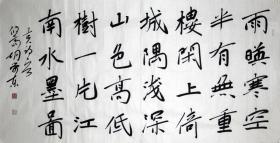 雨暎寒空
半有無重
樓閑上倚
城隅淺深
山色高低
樹一片江
南水墨圖